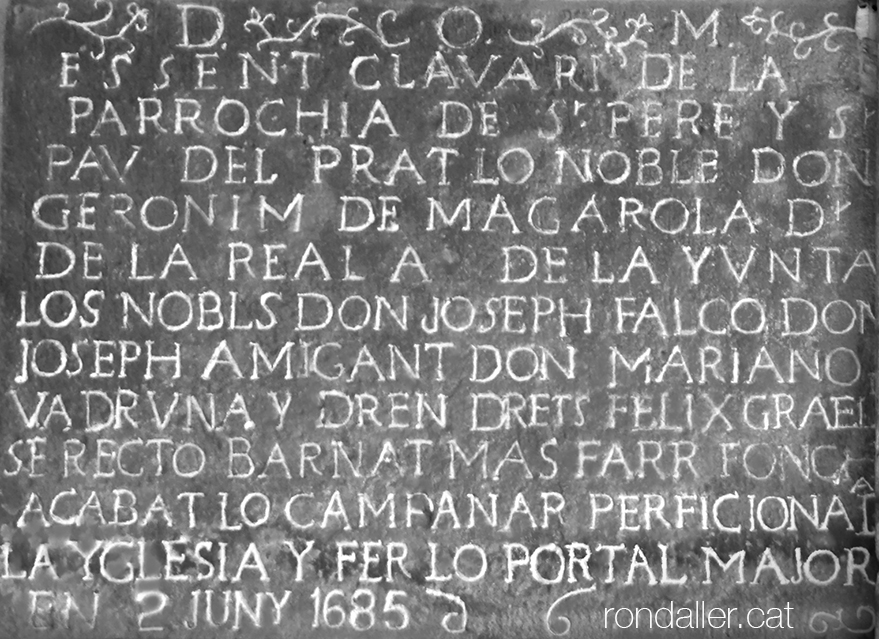 D. O. M.
ESSENT CLAVARI DE LA
PARROCHIA DE St PERE Y St
PAV DEL PRAT LO NOBLE DON
GERONIM DE MAGAROLA Dr
DE LA REAL A DE LA YVNTA
LOS NOBLS DON JOSEPH FALCO DON
JOSEPH AMIGANT DON MARIANO
VADRVNA Y DREN DRETS FELIX GRAEL
SE RECTO BARNAT MAS FARR FONCH
ACABAT LO CAMPANAR PERFICIONAT
LA YGLESIA Y FER LO PORTAL MAJOR
EN 2 JUNY 1685
rondaller.cat